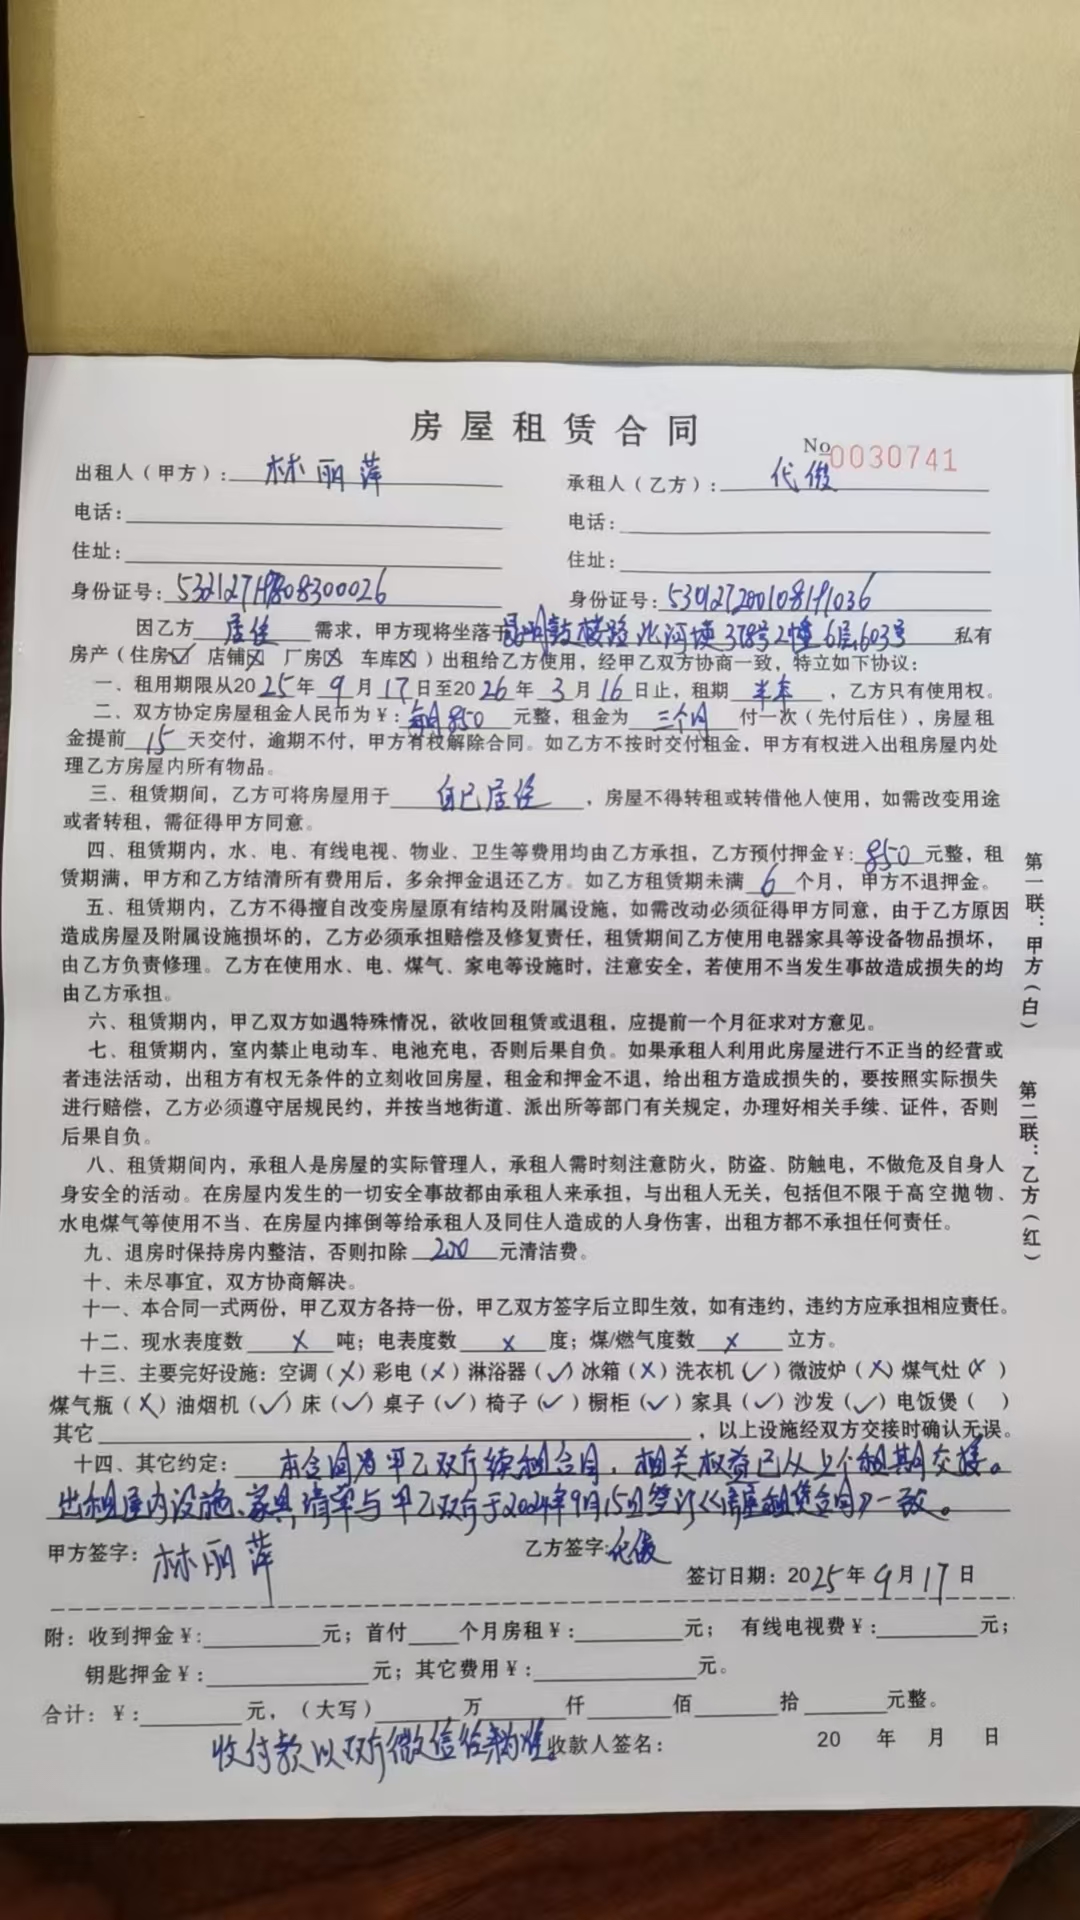 房屋租赁合同
No 0030741
出租人（甲方）：林丽萍 承租人（乙方）：代俊
电话： 电话：
住址： 住址：
身份证号： 身份证号：
因乙方 居住 需求，甲方现将坐落于昆明鼓楼路 378号2幢6层603号 私有
房产（住房☑ 店铺☒ 厂房☒ 车库☒）出租给乙方使用，经甲乙双方协商一致，特立如下协议：
一、租用期限从2025年9月17日至2026年3月16日止，租期 半年 ，乙方只有使用权。
二、双方协定房屋租金人民币为￥：每月850 元整，租金为 三个月 付一次（先付后住），房屋租
金提前 15 天交付，逾期不付，甲方有权解除合同。如乙方不按时交付租金，甲方有权进入出租房屋内处
理乙方房屋内所有物品。
三、租赁期间，乙方可将房屋用于 自己居住 ，房屋不得转租或转借他人使用，如需改变用途
或者转租，需征得甲方同意。
四、租赁期内，水、电、有线电视、物业、卫生等费用均由乙方承担，乙方预付押金￥：850 元整，租
赁期满，甲方和乙方结清所有费用后，多余押金退还乙方。如乙方租赁期未满 6 个月， 甲方不退押金。
五、租赁期内，乙方不得擅自改变房屋原有结构及附属设施，如需改动必须征得甲方同意，由于乙方原因
造成房屋及附属设施损坏的，乙方必须承担赔偿及修复责任，租赁期间乙方使用电器家具等设备物品损坏，
由乙方负责修理。乙方在使用水、电、煤气、家电等设施时，注意安全，若使用不当发生事故造成损失的均
由乙方承担。
六、租赁期内，甲乙双方如遇特殊情况，欲收回租赁或退租，应提前一个月征求对方意见。
七、租赁期内，室内禁止电动车、电池充电，否则后果自负。如果承租人利用此房屋进行不正当的经营或
者违法活动，出租方有权无条件的立刻收回房屋，租金和押金不退，给出租方造成损失的，要按照实际损失
进行赔偿，乙方必须遵守居规民约，并按当地街道、派出所等部门有关规定，办理好相关手续、证件，否则
后果自负。
八、租赁期间内，承租人是房屋的实际管理人，承租人需时刻注意防火，防盗、防触电，不做危及自身人
身安全的活动。在房屋内发生的一切安全事故都由承租人来承担，与出租人无关，包括但不限于高空抛物、
水电煤气等使用不当、在房屋内摔倒等给承租人及同住人造成的人身伤害，出租方都不承担任何责任。
九、退房时保持房内整洁，否则扣除 200 元清洁费。
十、未尽事宜，双方协商解决。
十一、本合同一式两份，甲乙双方各持一份，甲乙双方签字后立即生效，如有违约，违约方应承担相应责任。
十二、现水表度数 X 吨；电表度数 X 度；煤/燃气度数 X 立方。
十三、主要完好设施：空调（X）彩电（X）淋浴器（✓）冰箱（X）洗衣机（✓）微波炉（X）煤气灶（X）
煤气瓶（X）油烟机（✓）床（✓）桌子（✓）椅子（✓）橱柜（✓）家具（✓）沙发（✓）电饭煲（ ）
其它 ，以上设施经双方交接时确认无误。
十四、其它约定： 本合同为甲乙双方续租合同，相关权益已从上个租期交接。
出租屋内设施、家具清单与甲乙双方于2024年9月15日签订《房屋租赁合同》一致。
甲方签字：林丽萍 乙方签字：代俊
签订日期：2025年9月17日
附：收到押金￥： 元；首付 个月房租￥： 元； 有线电视费￥： 元；
钥匙押金￥： 元；其它费用￥： 元。
合计：￥： 元，（大写） 万 仟 佰 拾 元整。
收付款以双方微信 为准。收款人签名： 20 年 月 日
第一联：甲方（白） 第二联：乙方（红）